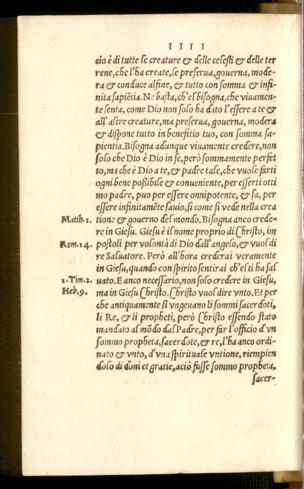 IIII
cio è di tutte le creature & delle celesti & delle ter
rene, che l'ha create, se preserua, gouerna, mode-
ra & conduce al fine, & tutto con somma & infi-
nita sapiẽtia. Ne basta, ch'el bisogna, che viuamen-
te senta, come Dio non solo ha dato l'essere a te &
all'altre creature, ma preserua, gouerna, modera
& dispone tutto in benefitio tuo, con somma sa-
pientia. Bisogna adunque viuamente credere, non
solo che Dio è Dio in se, però sommamente perfet
to, ma che è Dio a te, & padre tale, che vuole farti
ogni bene possibile & conueniente, per esserti otti
mo padre, puo per essere onnipotente, & sa, per
essere infinitamẽte sauio, si come si vede nella crea
Matth.1. tione & gouerno del mondo. Bisogna anco crede-
re in Giesu. Giesu è il nome proprio di Christo, im
Rom.14. postoli per volontà di Dio dall'angelo, & vuol di
re Saluatore. Però all'hora crederai veramente
in Giesu, quando con spirito sentirai ch'el ti ha sal
1.Tim.2. uato. E anco necessario, non solo credere in Giesu,
Heb.9. ma in Giesu Christo. Christo vuol dire vnto. Et per
che antiquamente si vngeuano li sommi sacerdoti,
li Re, & li propheti, però Christo essendo stato
mandato al mõdo dal Padre, per far l'officio d'vn
sommo propheta, sacerdote, & re, l'ha anco ordi-
nato & vnto, d'vna spirituale vntione, riempien
dolo di doni et gratie, aciò fusse sommo propheta,
sacer-